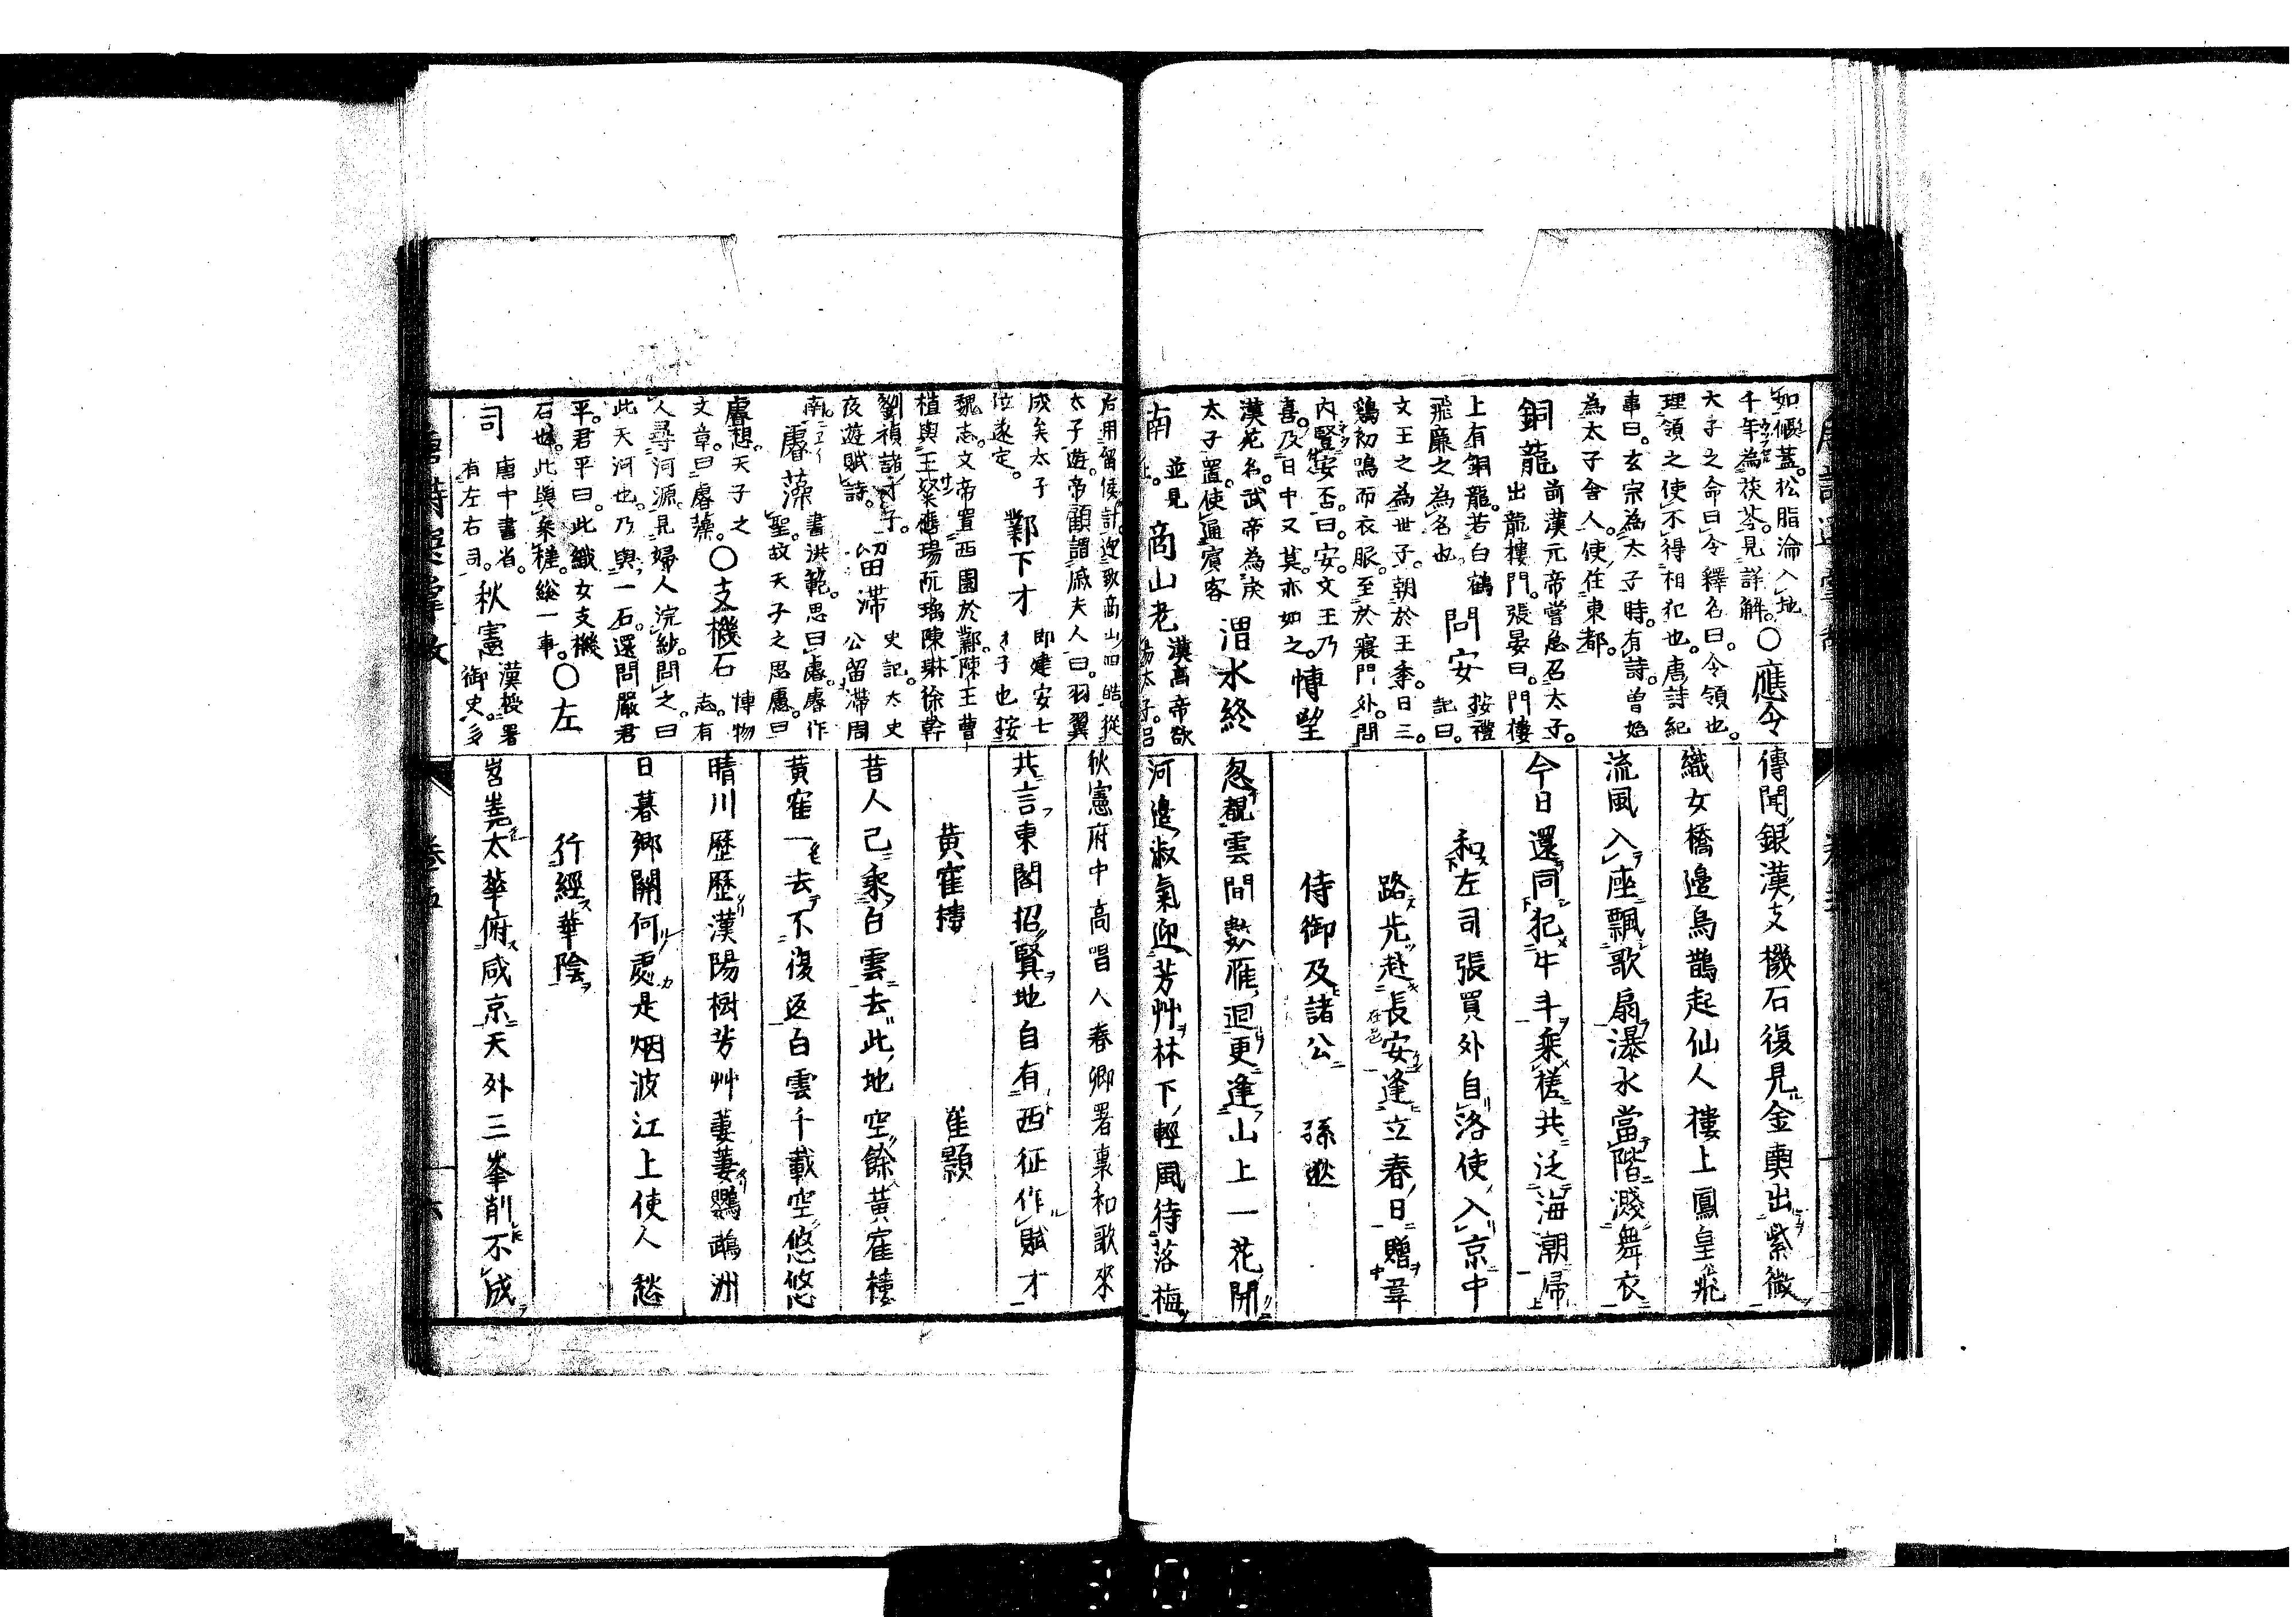 如偃蓋。松脂淪入地
千年為茯苓。見詳解。○應令
太子之命曰令釋名曰。令領也。
理領之使不得相犯也。唐詩紀
事曰。玄宗為太子時。有詩。曾
為太子舍人。使在東都。
銅龍 前漢元帝嘗急召太子。
出龍樓門。張晏曰。門樓
上有銅龍。若白鶴
飛廉之為名也。 問安 按禮
記曰。
文王之為世子。朝於王季。日三。
鷄初鳴而衣服。至於寢門外。問
内豎安否。曰。安。文王乃
喜。及日中又莫。亦如之。 博望
漢苑名。武帝為戾
太子置。使通賓客 渭水終
南 並見
上。 商山老 漢高帝欲
太子。呂
后用留侯計。迎致商山四皓。從
太子遊。帝顧謂戚夫人曰。羽翼
成矣太子
位遂定。 鄴下才 即建安七
才子也按
魏志。文帝置西園於鄴。陳王曹
植與王粲應瑒阮瑀陳琳徐幹
劉禎諸才子。
夜遊賦詩。 留滞 史記。太史
公留滞周
南。 睿藻 書洪範。思曰睿。睿作
聖。故天子之思慮。曰
睿想。天子之
文章。曰睿藻。 ○支機石 博物
志。有
人尋河源。見婦人浣紗。問之。曰
此天河也。乃與一石。還問嚴君
平。君平曰。此織女支機
石也。此與乗槎総一事。 ○左
司 唐中書省。
有左右司。 秋憲 漢授署
御史。多
傳聞銀漢支機石復見金輿出紫微
織女橋邊烏鵲起仙人樓上鳳皇飛
流風入座飄歌扇瀑水當階濺舞衣
今日還同犯牛斗乗槎共泛海潮歸
和左司張員外自洛使入京中
路先赴長安逢立春日贈韋
侍御及諸公 孫逖
忽覩雲間數雁迴更逢山上一花開
河邊淑氣迎芳艸林下輕風待落梅
秋憲府中高唱人春卿署裏和歌來
共言東閣招賢地自有西征作賦才
黄寉樓 崔顥
昔人已乗白雲去此地空餘黄寉樓
黄寉一去不復返白雲千載空悠悠
晴川歴歴漢陽樹芳艸萋萋鸚鵡洲
日暮郷關何處是烟波江上使人愁
行經華陰
岧嶤太華俯咸京天外三峯削不成